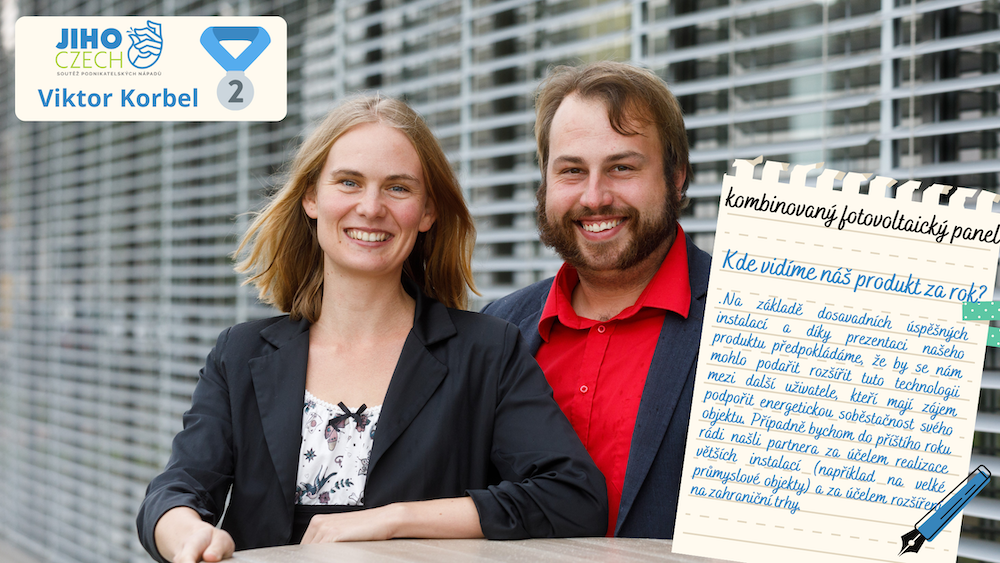 JIHO
CZECH
SOUTĚŽ PODNIKATELSKÝCH NÁPADŮ
Viktor Korbel
2
kombinovaný fotovoltaický panel
Kde vidíme náš produkt za rok?
Na základě dosavadních úspěšných
instalací a díky prezentaci našeho
produktu předpokládáme, že by se nám
mohlo podařit rozšířit tuto technologii
mezi další uživatele, kteří mají zájem
podpořit energetickou soběstačnost svého
objektu. Případně bychom do příštího roku
rádi našli partnera za účelem realizace
větších instalací (například na velké
průmyslové objekty) a za účelem rozšíření
na zahraniční trhy.